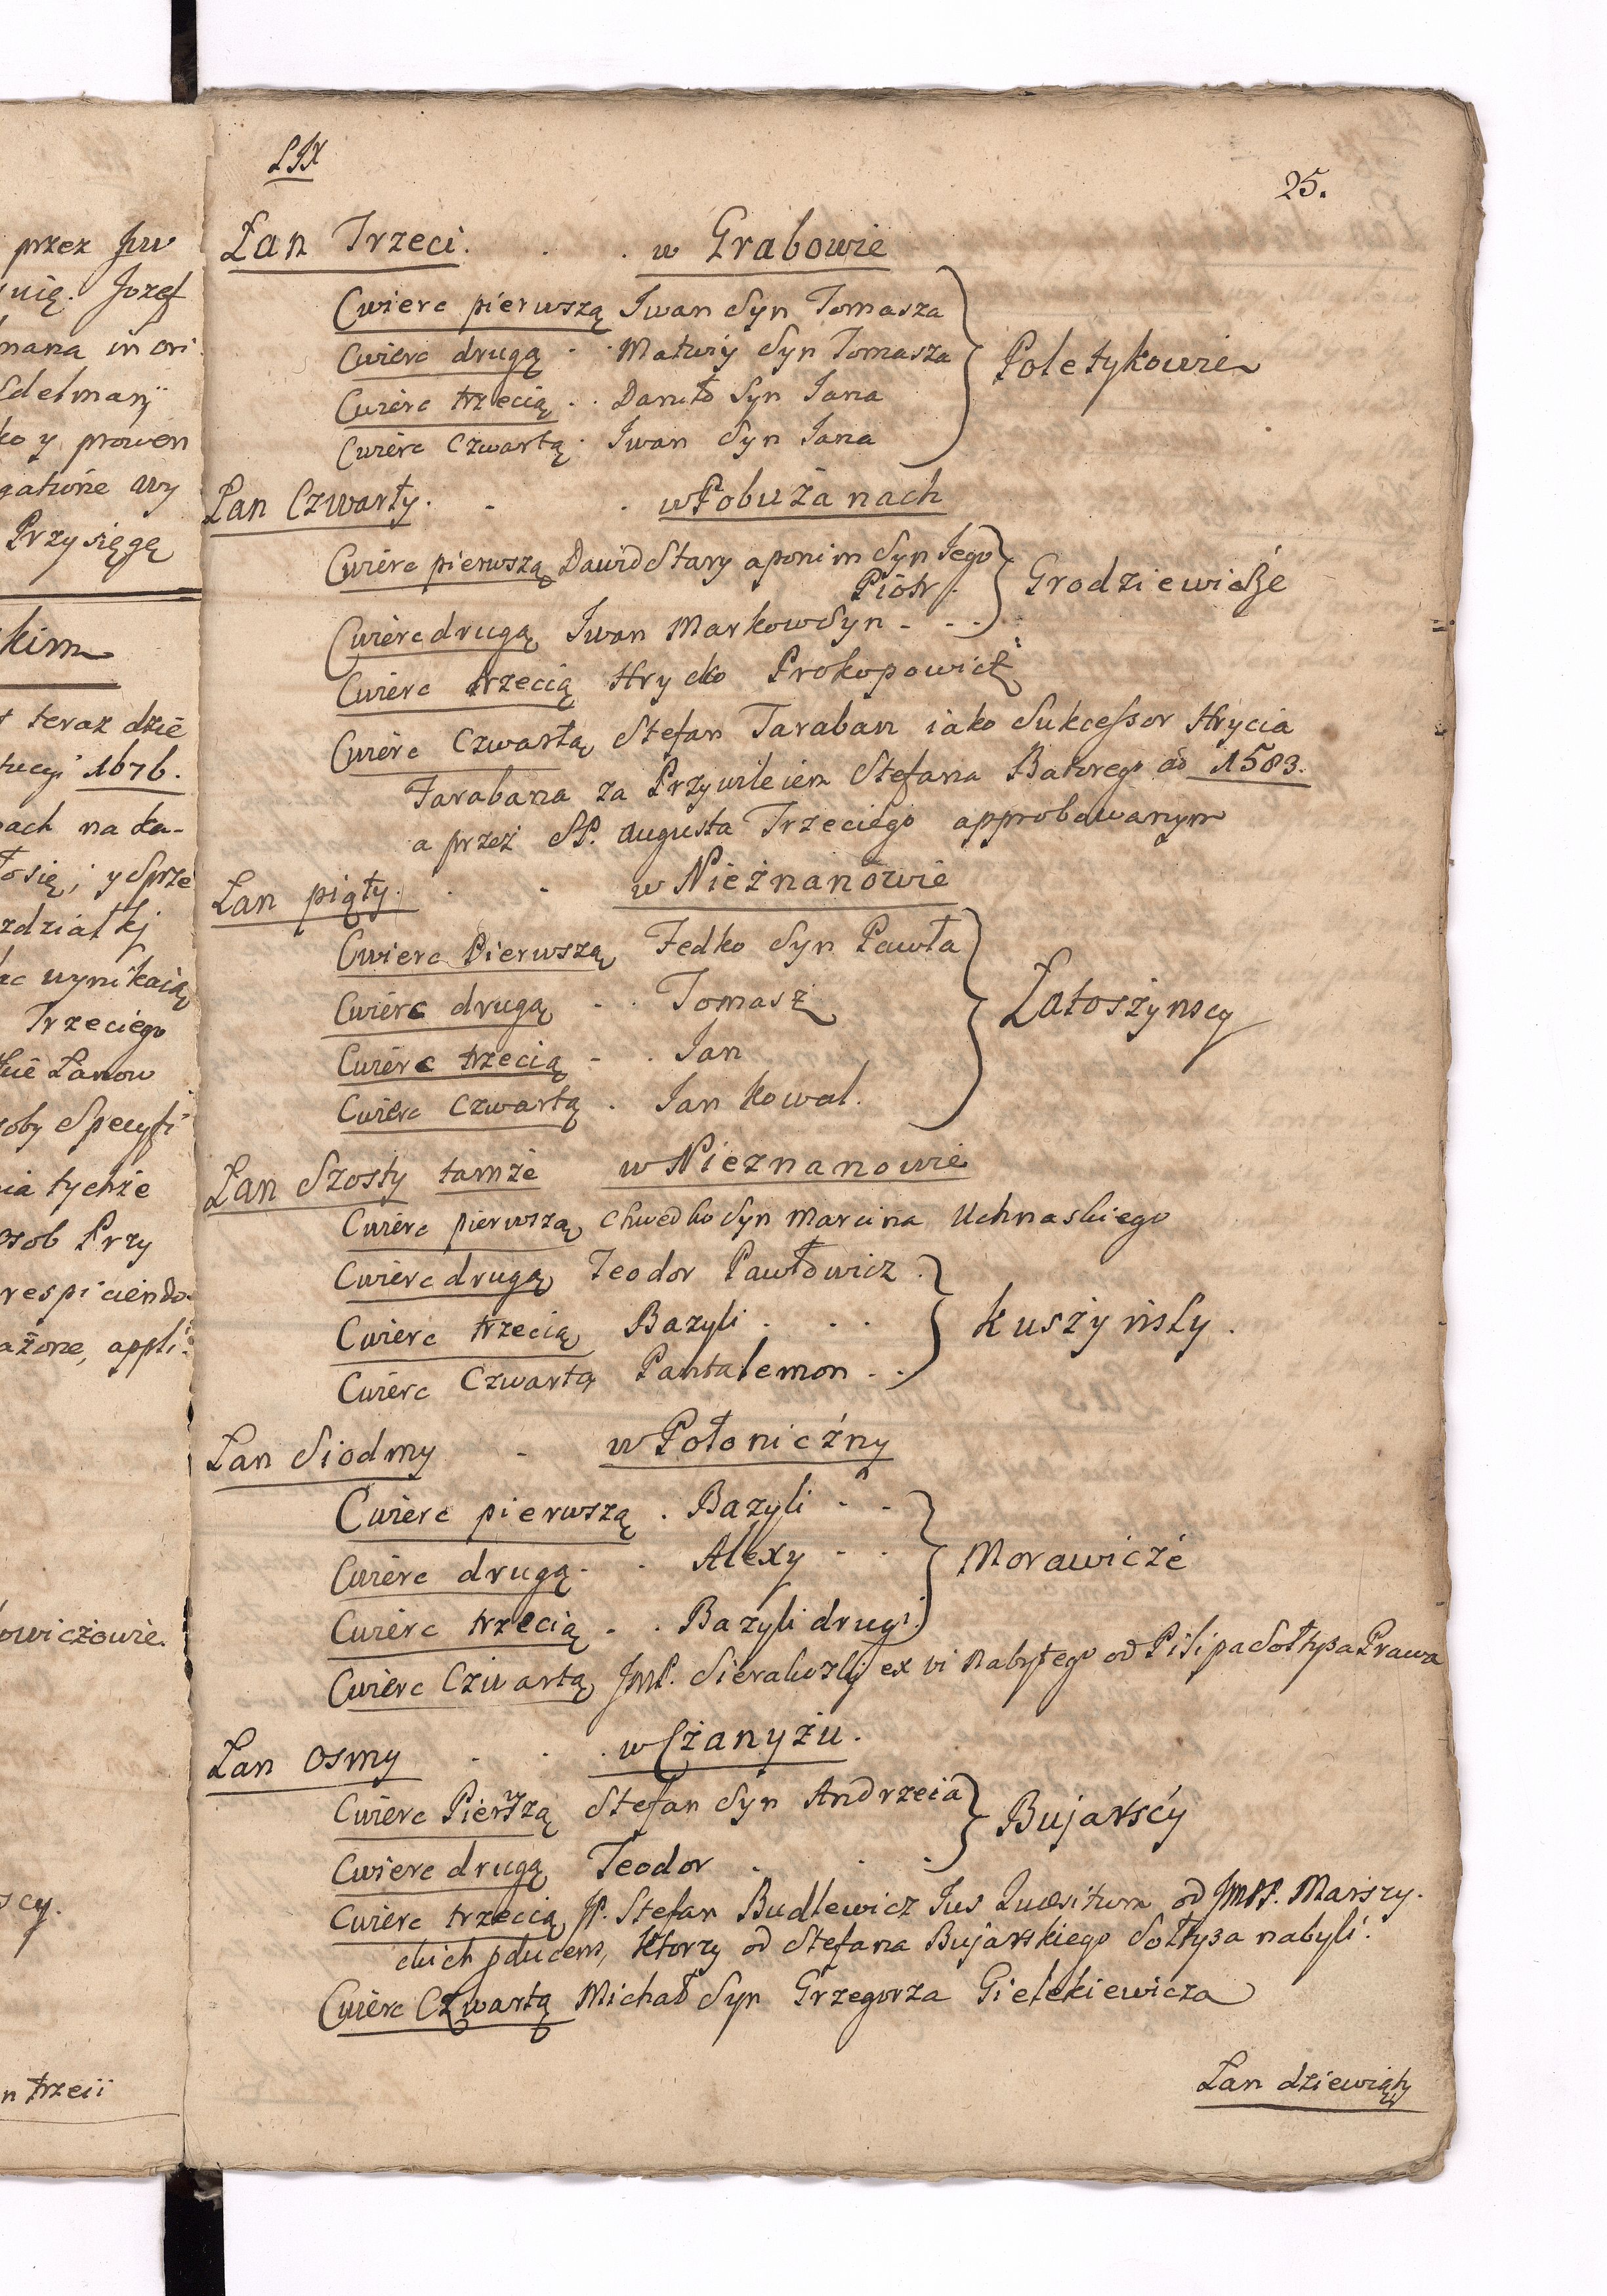 przez Jw
nię. Jozef
mana in ori
Edelmanÿ
ko y prowen
gatione wy
Przysięgę
kim
teraz dzie
tucyi 1676.
ach na ka-
to się; y Sprze
zdziałkj
ac wynikaią
Trzeciego
kie Łanow
oby Specyfi
ia tychże
osob Przy
respiciendo
ażone, appli:
owiczowie.
scy.
n trzeii
LIX
25.
Łan Trzeci. . . w Grabowie
Cwierc pierwszą Iwan Syn Tomasza
Cwierc drugą - . Matwiy Syn Tomasza
Cwierc trzecią . . Daniło Syn Iana
Cwierc Czwartą . Iwan Syn Iana
Poletykowie
Łan Czwarty. - . w Pobużanach
Cwierc pierwszą Dawid Stary a po nim Syn Iego
Piotr.
Grodziewicże
Cwierc drugą Iwan Markow Syn - - -
Cwierc trzecią Hrycko Prokopowicż
Cwierc Czwartą Stefan Taraban iako Sukcessor Hrycia
Tarabana za Przywileiem Stefana Batorego od 1583.
a przeż SP. Augusta Trzeciego approbowanym
Łan piąty. . - w Nieżnanowie
Cwierc Pierwszą Fedko Syn Pawła
Cwierc drugą - . Tomasz
Cwierc trzecią - . Jan
Cwierc Czwartą . Jan Kowal.
Łatoszynscy
Łan Szosty tamże w Nieznanowie
Cwierc pierwszą Chwedko Syn Marcina Uchnaskiego
Cwierc drugą Teodor Pawłowicz .
Cwierc trzecią Bazyli . . .
Cwierc Czwartą Pantalemon . .
Kuszyńsky.
Łan Siodmy - w Połonicżny
Cwierc pierwszą . Bazyli - -
Cwierc drugą - . Alexy - -
Cwierc trzecią - . Bazyli drugi.
Morawicże
Cwierc Czwartą JmP. Sierakoski ex vi nabytego od Pilipa Sołtysa Prawa
Łan Osmy . . . w Czanyżu.
Cwierc Pierwszą Stefan Syn Andrzeia
Cwierc drugą Teodor . . .
Bujarscy
Cwierc trzecią JP. Stefan Budlewicz Jus Quæsitum od JmPP. Marszy-
ckich pducens, ktorzy od Stefana Bujarskiego Sołtysa nabyli.
Cwierc Czwartą Michał Syn Grzegorza Gielekiewicza
Łan dziewiąty